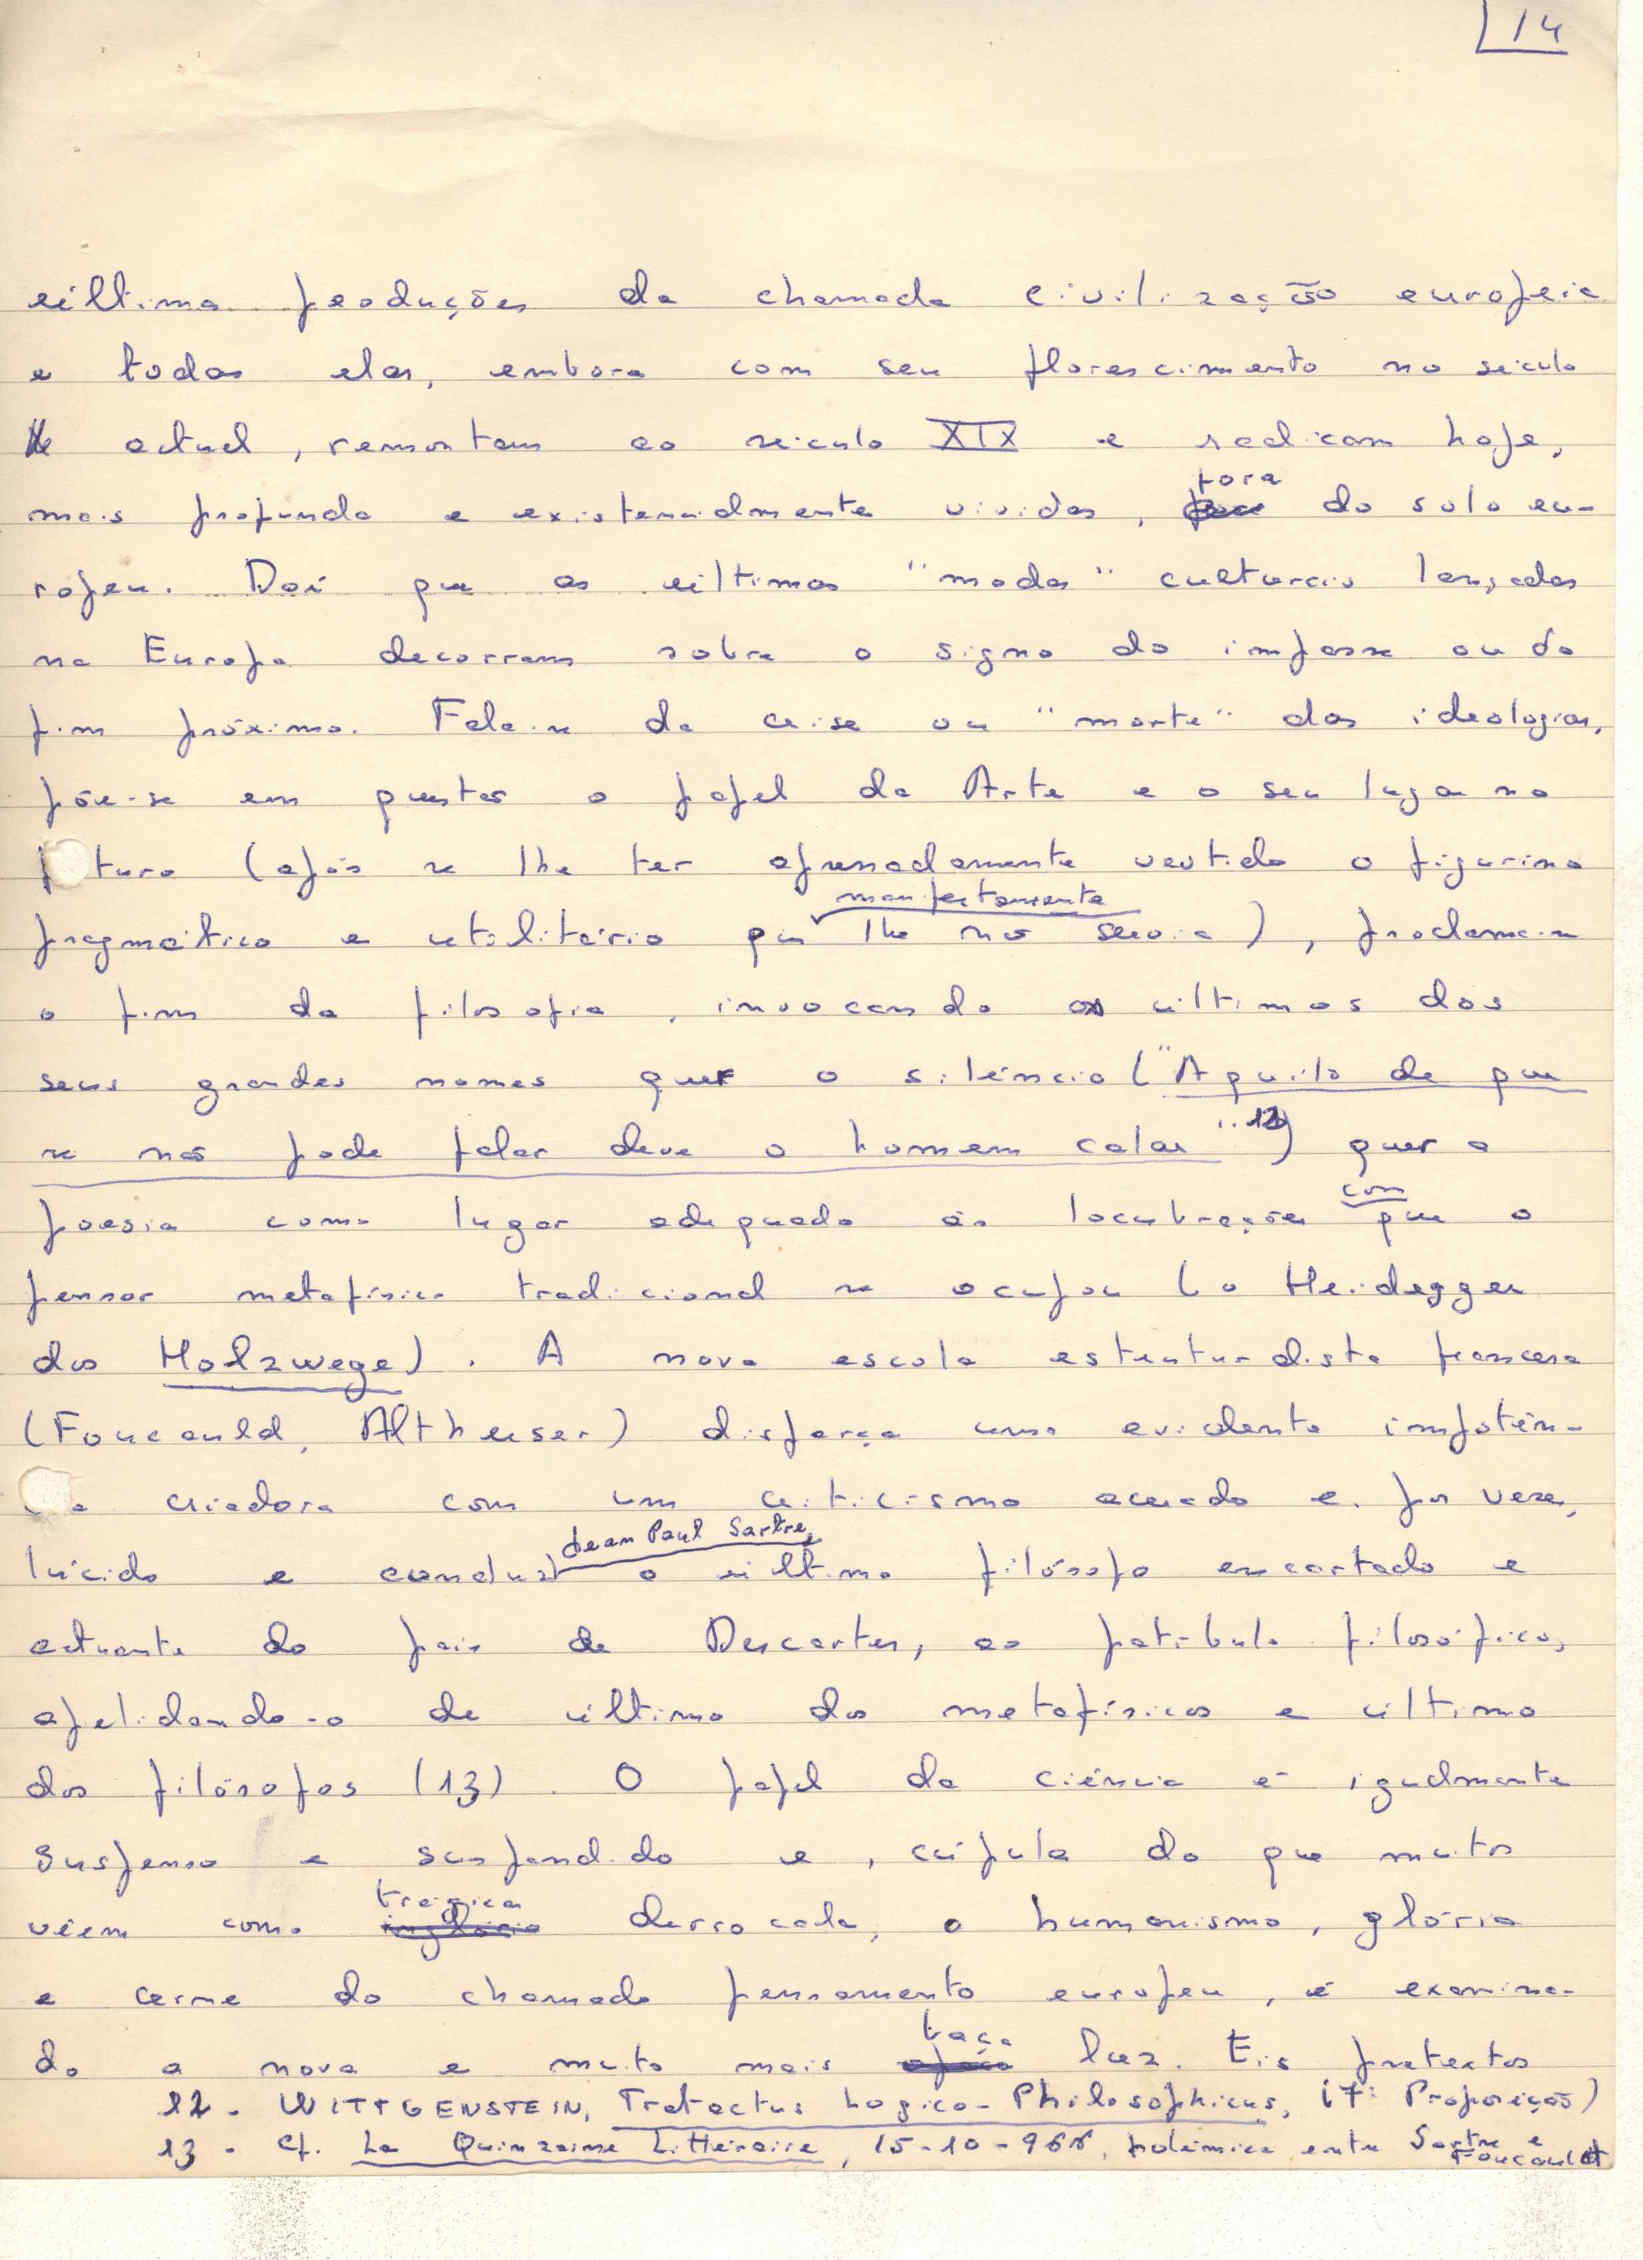 14
última produções da chamada civilização europeia
e todas elas, embora com seu florescimento no século
actual, remontam ao século XIX e radicam hoje,
fora
mais profunda e existencialmente vividas, do solo eu-
ropeu. Daí que as últimas "modas" culturais lançadas
na Europa decorram sobre o signo do impasse ou do
fim próximo. Fala-se da crise ou "morte" das ideologias,
põe-se em questão o papel da Arte e o seu lugar no
futuro (após se lhe ter apressadamente vestido o figurino
manifestamente
pragmático e utilitário que lhe não servia), proclama-se
o fim da filosofia, invocando os últimos dos
seus grandes nomes quer o silêncio ("Aquilo de que
se não pode falar deve o homem calar" 12) quer a
com
poesia como lugar adequado às locubrações que o
pensar metafísico tradicional se ocupou (o Heidegger
dos Holzwege). A nova escola estruturalista francesa
(Foucauld, Altheuser) disfarça uma evidente impotên-
cia criadora com um criticismo acerado e, por vezes,
Jean Paul Sartre,
lúcido e conduz o último filósofo encartado e
actuante do país de Descartes, ao patíbulo filosófico,
apelidando-o de último dos metafísicos e último
dos filósofos (13). O papel da ciência é igualmente
suspenso e suspendido e, cúpula do que muitos
trágica
vêem como inglória derrocada, o humanismo, glória
e cerne do chamado pensamento europeu, é examina-
baça
do a nova e muito mais luz. Eis pretextos
12 - WITTGENSTEIN, Tratactus Logico-Philosophicus, (7ª Proposição)
13 - Cf. La Quinzaine Littéraire, 15-10-966, polémica entre Sartre e
Foucauld